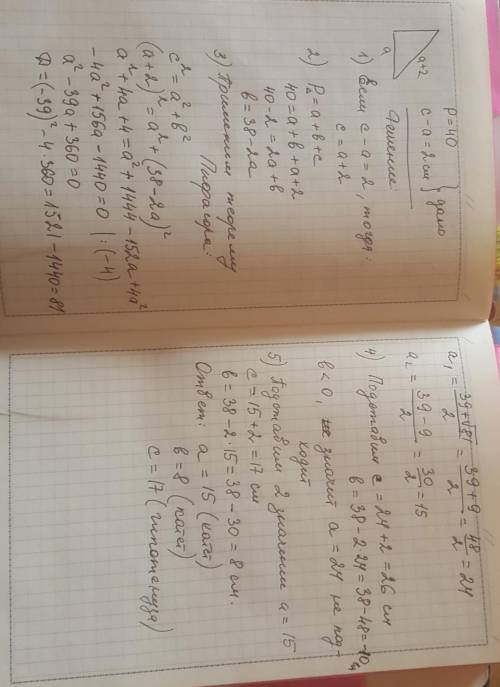 P=40
c-a=2см } дано
a
a+2
Решение:
1) Если c-a=2, тогда:
c=a+2
2) P△=a+b+c
40=a+b+a+2
40-2=2a+b
b=38-2a
3) Применим теорему
Пифагора:
c²=a²+b²
(a+2)²=a²+(38-2a)²
a²+4a+4=a²+1444-152a+4a²
-4a²+156a-1440=0 |:(-4)
a²-39a+360=0
D=(-39)²-4·360=1521-1440=81
a₁=(39+√81)/2=(39+9)/2=48/2=24
a₂=(39-9)/2=30/2=15
4) Подставим c=24+2=26 см
b=38-2·24=38-48=-10,
b<0, значит a=24 не под-
ходит
5) Подставим 2 значение a=15
c=15+2=17 см
b=38-2·15=38-30=8 см.
Ответ: a=15 (катет)
b=8 (катет)
c=17 (гипотенуза)